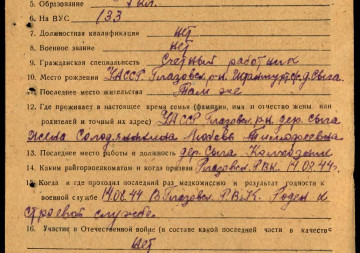 5. Образование кл.
6. На ВУС 133
7. Должностная квалификация нет
8. Военное звание нет
9. Гражданская специальность Счетный работник
10. Место рождения УАССР Глазовск. р-н д. Сыга
11. Последнее место жительства Там же
12. Где проживает в настоящее время семья (фамилия, имя и отчество жены или
родителей и точный их адрес) УАССР Глазовск. р-н. дер. Сыга
жена Солодянкина Любовь Тимофеевна
13. Последнее место работы и должность дер. Сыга
14. Каким райгорвоенкоматом и когда призван Глазовск. РВК 14.02.44г.
15. Когда и где проходил последний раз медкомиссию и результат годности к
военной службе 14.02.44 В Глазовск. РВК. Годен к
строевой службе.
16. Участие в Отечественной войне (в составе какой последней части в качестве
Нет